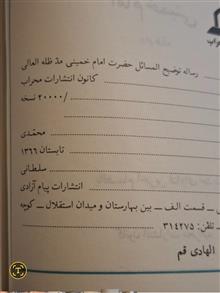 رساله توضیح المسائل حضرت امام خمینی مدّ ظله العالی
کانون انتشارات محراب
۲۰۰۰۰/ نسخه
محمّدی
تابستان ۱۳۶۶
سلطانی
انتشارات پیام آزادی
ـ قسمت الف ـ بین بهارستان و میدان استقلال ـ کوچه
ـ تلفن: ۳۱۴۲۷۵
الهادی قم